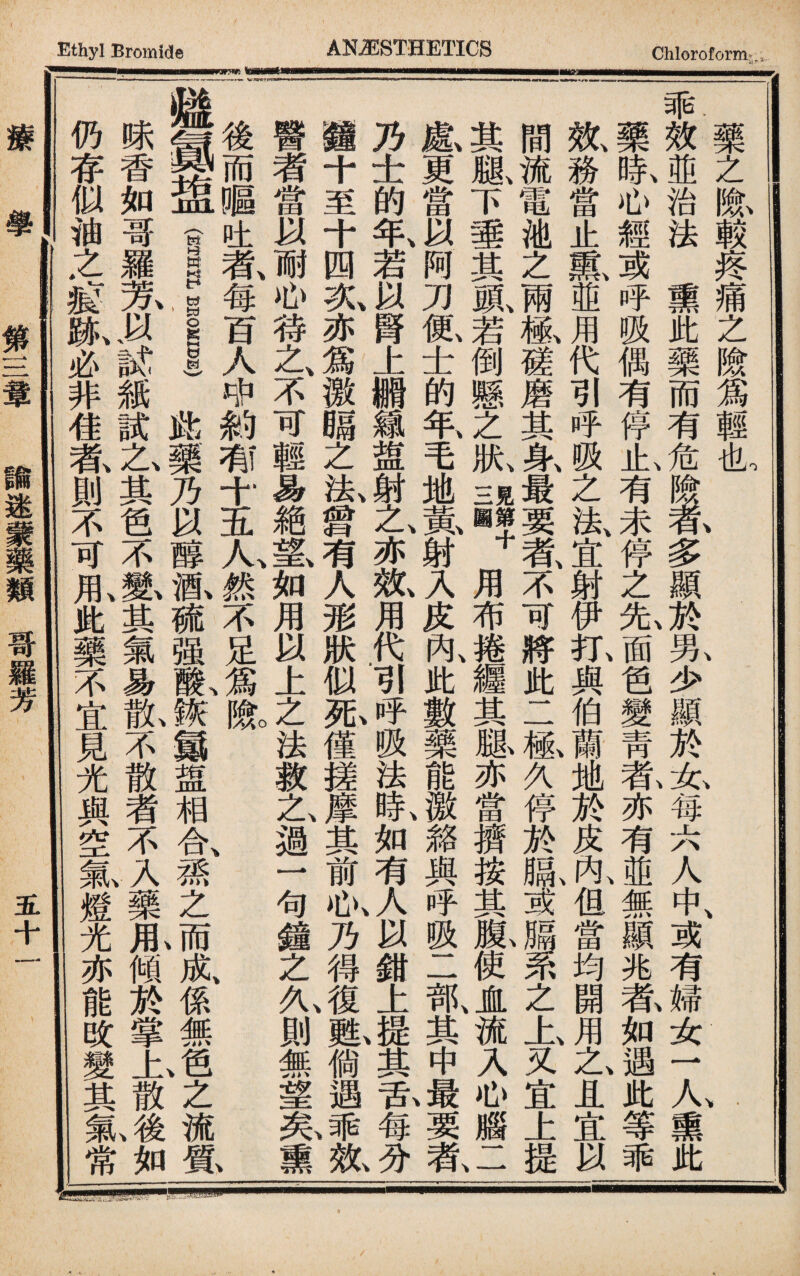 Ethyl Bromide
ANÆSTHETICS
Chloroform
藥之險、較疼痛之險爲輕也。
乖效並治法 熏此藥而有危險者、多顯於男、少顯於女、每六人中、或有婦女一人、熏此
藥時、心經或呼吸偶有停止、有未停之先、面色變靑者、亦有並無顯兆者、如遇此等乖
效、務當止熏、並用代引呼吸之法、宜射伊打、與伯蘭地於皮內、但當均開用之、且宜以
間流電池之兩極、磋磨其身、最要者、不可將此二極、久停於膈、或膈系之上、又宜上提
其腿、下垂其頭、若倒懸之狀、見第十三圖 用布捲纏其腿、亦當擠按其腹、使血流入心腦二
處、更當以阿刀便、士的年、毛地黃、射入皮內、此數藥能激絡與呼吸二部、其中最要者、
乃士的年、若以腎上腺䊹盐射之、亦效、用代引呼吸法時、如有人以鉗上提其舌、每分
鐘十至十四次、亦爲激膈之法、曾有人形狀似死、僅搓摩其前心、乃得復甦、倘遇乖效、
醫者當以耐心待之、不可輕易絕望、如用以上之法救之、過一句鐘之久、則無望矣、熏
後而嘔吐者、每百人中約有十五人、然不足爲險。
(ETHYL BROMIDE) 此藥乃以醇酒、硫强酸、鉃盐相合、烝之而成、係無色之流質、
味香如哥羅芳、以試紙試之、其色不變、其氣易散、不散者不入藥用、傾於掌上、散後如
仍存似油之痕跡、必非佳者、則不可用、此藥不宜見光與空氣、燈光亦能改變其氣、常
療學 第三章 論迷蒙藥類 哥羅芳 五十一